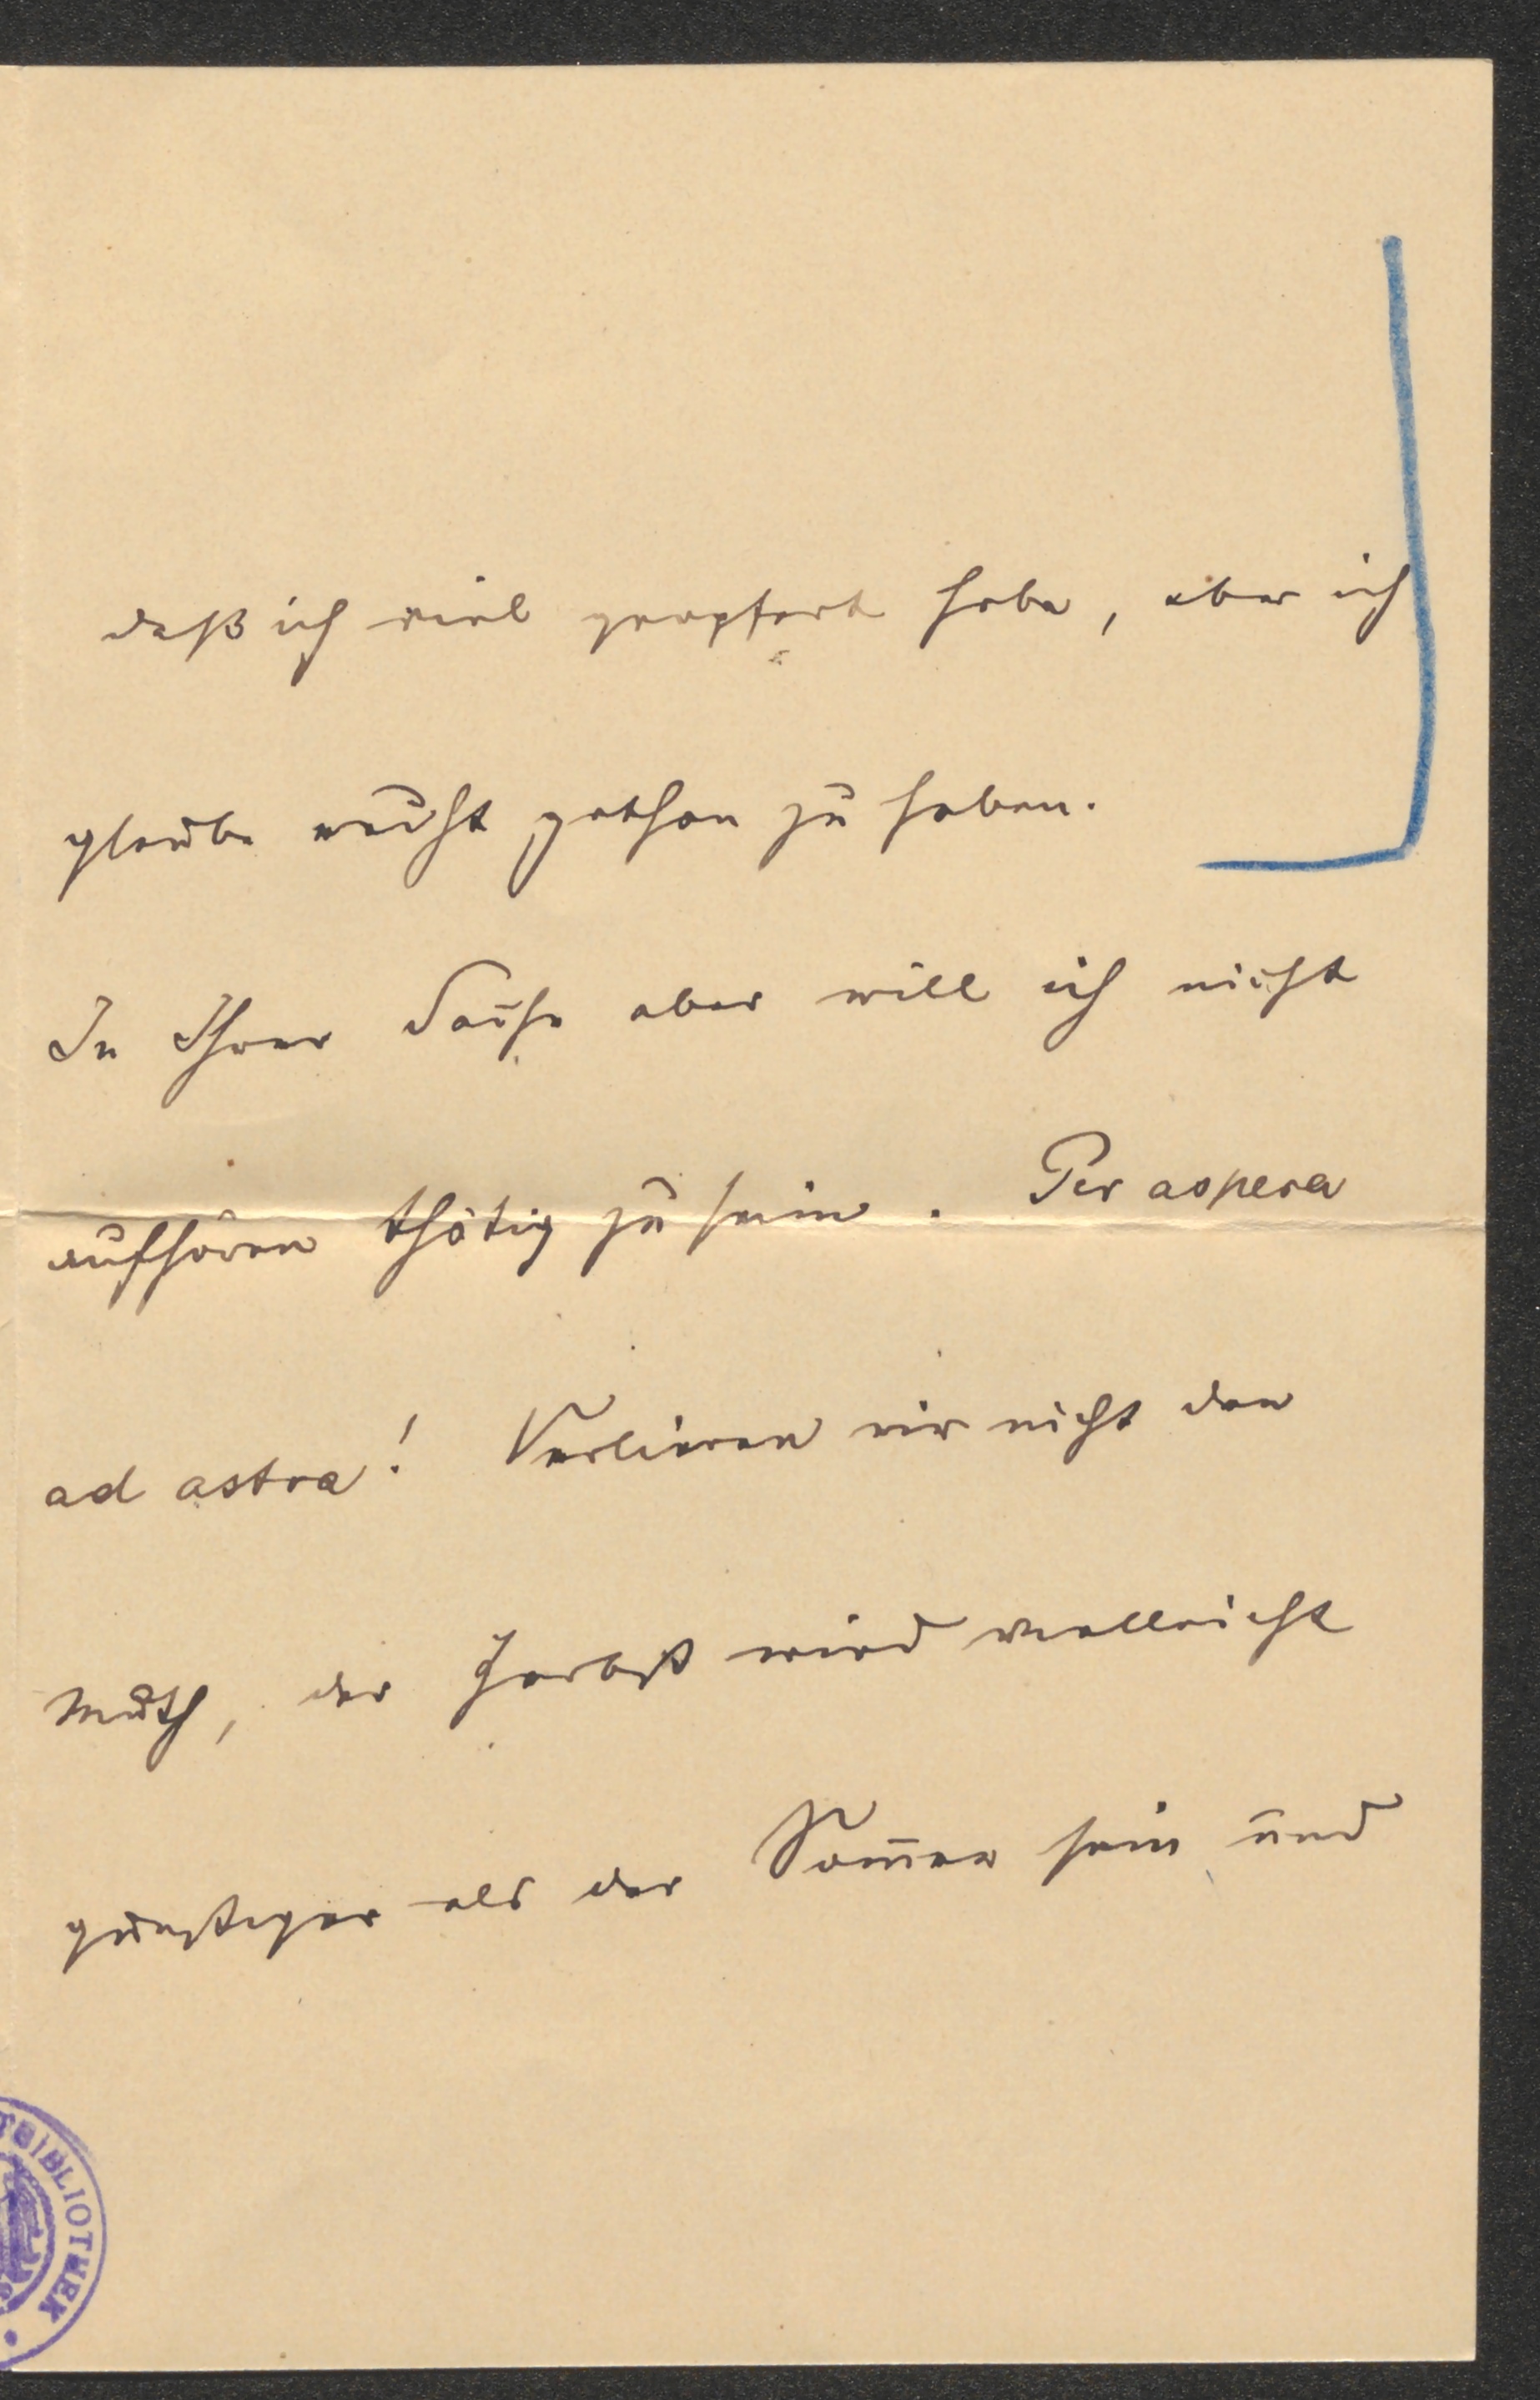 daß ich viel geopfert habe, aber ich
glaube recht gethan zu haben.
In Ihrer Sache aber will ich nicht
aufhören thätig zu sein. Per aspera
ad astra! Verlieren wir nicht den
Muth, der Herbst wird vielleicht
günstiger als der Som̅er sein und
BIBLIOTHEK